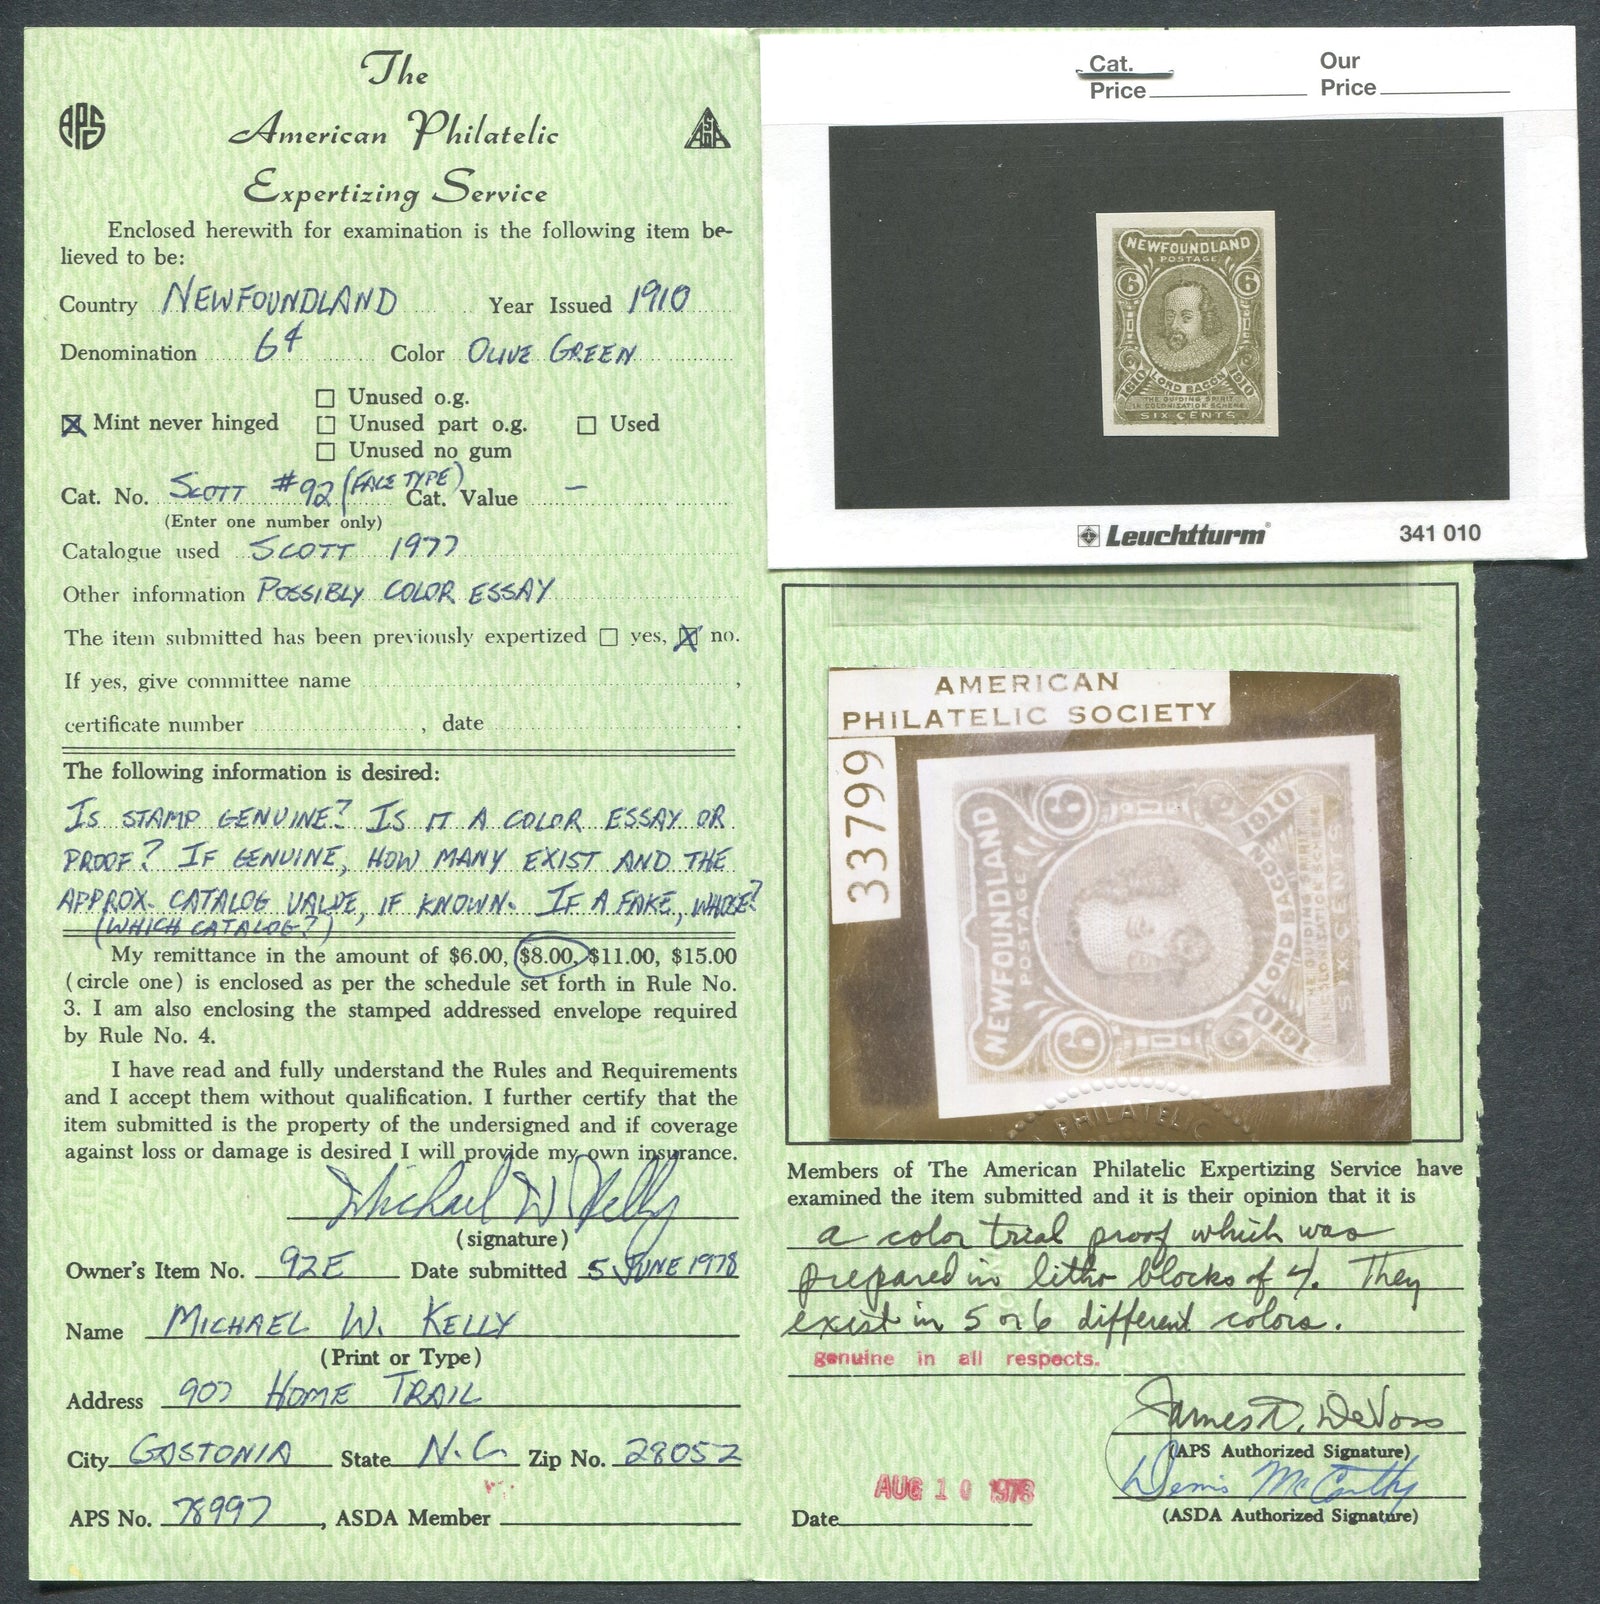 The
APS
American Philatelic
ASDA
Expertizing Service
Enclosed herewith for examination is the following item be-
lieved to be:
Country NEWFOUNDLAND Year Issued 1910
Denomination 6¢ Color OLIVE GREEN
Unused o.g.
Mint never hinged Unused part o.g. Used
Unused no gum
Cat. No. SCOTT #92 (FACE TYPE) Cat. Value –
(Enter one number only)
Catalogue used SCOTT 1977
Other information POSSIBLY COLOR ESSAY
The item submitted has been previously expertized yes, no.
If yes, give committee name ,
certificate number , date .
The following information is desired:
IS STAMP GENUINE? IS IT A COLOR ESSAY OR
PROOF? IF GENUINE, HOW MANY EXIST AND THE
APPROX. CATALOG VALUE, IF KNOWN. IF A FAKE, WHOSE?
(WHICH CATALOG?)
My remittance in the amount of $6.00, $8.00, $11.00, $15.00
(circle one) is enclosed as per the schedule set forth in Rule No.
3. I am also enclosing the stamped addressed envelope required
by Rule No. 4.
I have read and fully understand the Rules and Requirements
and I accept them without qualification. I further certify that the
item submitted is the property of the undersigned and if coverage
against loss or damage is desired I will provide my own insurance.
Michael W. Kelly
(signature)
Owner's Item No. 92E Date submitted 5 JUNE 1978
Name MICHAEL W. KELLY
(Print or Type)
Address 907 HOME TRAIL
City GASTONIA State N.C. Zip No. 28052
APS No. 78997, ASDA Member
Cat. Our
Price Price
NEWFOUNDLAND
POSTAGE
6 6
1610 LORD BACON 1910
THE GUIDING SPIRIT
IN COLONISATION SCHEME
SIX CENTS
Leuchtturm 341 010
AMERICAN
PHILATELIC SOCIETY
33799
NEWFOUNDLAND
POSTAGE
6 6
1610 LORD BACON 1910
THE GUIDING SPIRIT
IN COLONISATION SCHEME
SIX CENTS
PHILATELIC
Members of The American Philatelic Expertizing Service have
examined the item submitted and it is their opinion that it is
a color trial proof which was
prepared in litho blocks of 4. They
exist in 5 or 6 different colors.
genuine in all respects.
James T. DeVoss
(APS Authorized Signature)
Denis McCarthy
AUG 10 1978
Date (ASDA Authorized Signature)